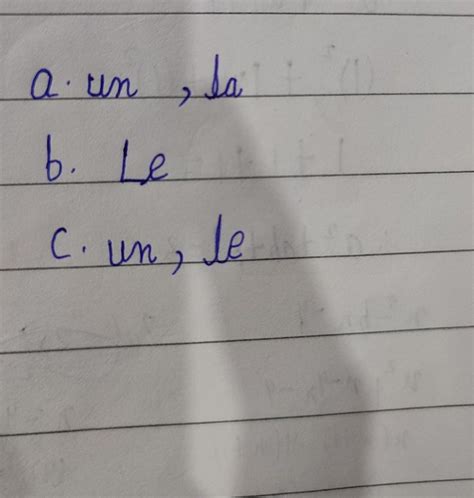 a. un, la
b. Le
c. un, le